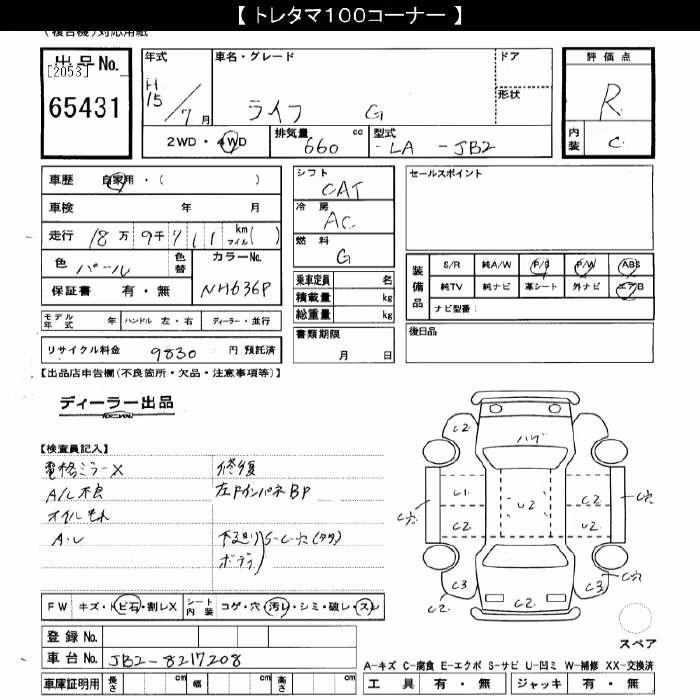 【 トレタマ100コーナー 】
(複合機)対応用紙
出品No.
[2053]
65431
年式
H
15
/7月
車名・グレード
ライフ G
ドア
形状
2WD・4WD
排気量 660 cc
型式 -LA -JB2
評価点
R
内装 C
車歴 自家用・( )
車検 年 月
走行 18万9千711 km マイル( )
色 パール
色替
カラーNo.
NH636P
保証書 有・無
モデル年式 年
ハンドル 左・右
ディーラー・並行
リサイクル料金 9830 円 預託済
シフト
CAT
冷房
AC
燃料
G
乗車定員 名
積載量 kg
総重量 kg
書類期限
月 日
セールスポイント
装備品
S/R 純A/W P/S P/W ABS
純TV 純ナビ 革シート 外ナビ エアB
ナビ型番:
後日品
【出品店申告欄(不良箇所・欠品・注意事項等)】
ディーラー出品
【検査員記入】
電格ミラーX
A/C不良
オイルモレ
修復
左FインパネBP
下廻り
ボディ
S-C-穴(タタ)
C2
ハゲ
C2
C穴
C1
C2
U2
C2
C2
C穴
C3
C2
C2
C3
C穴
FW キズ・トビ石・割レX
シート内装 コゲ・穴・汚レ・シミ・破レ・スレ
登録No.
車台No. JB2-8217208
車庫証明用 長さ cm 幅 cm 高さ cm
スペア
A-キズ C-腐食 E-エクボ S-サビ U-凹ミ W-補修 XX-交換済
工具 有・無 ジャッキ 有・無